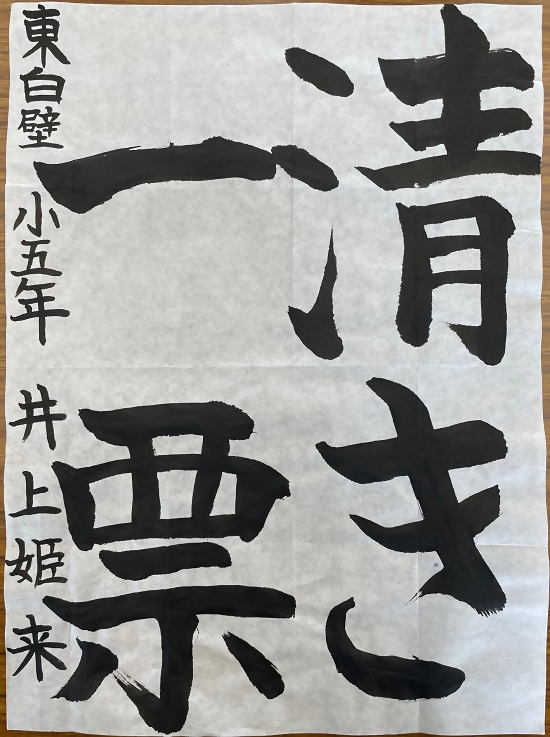 清き
一票
東白壁 小五年 井上姫来